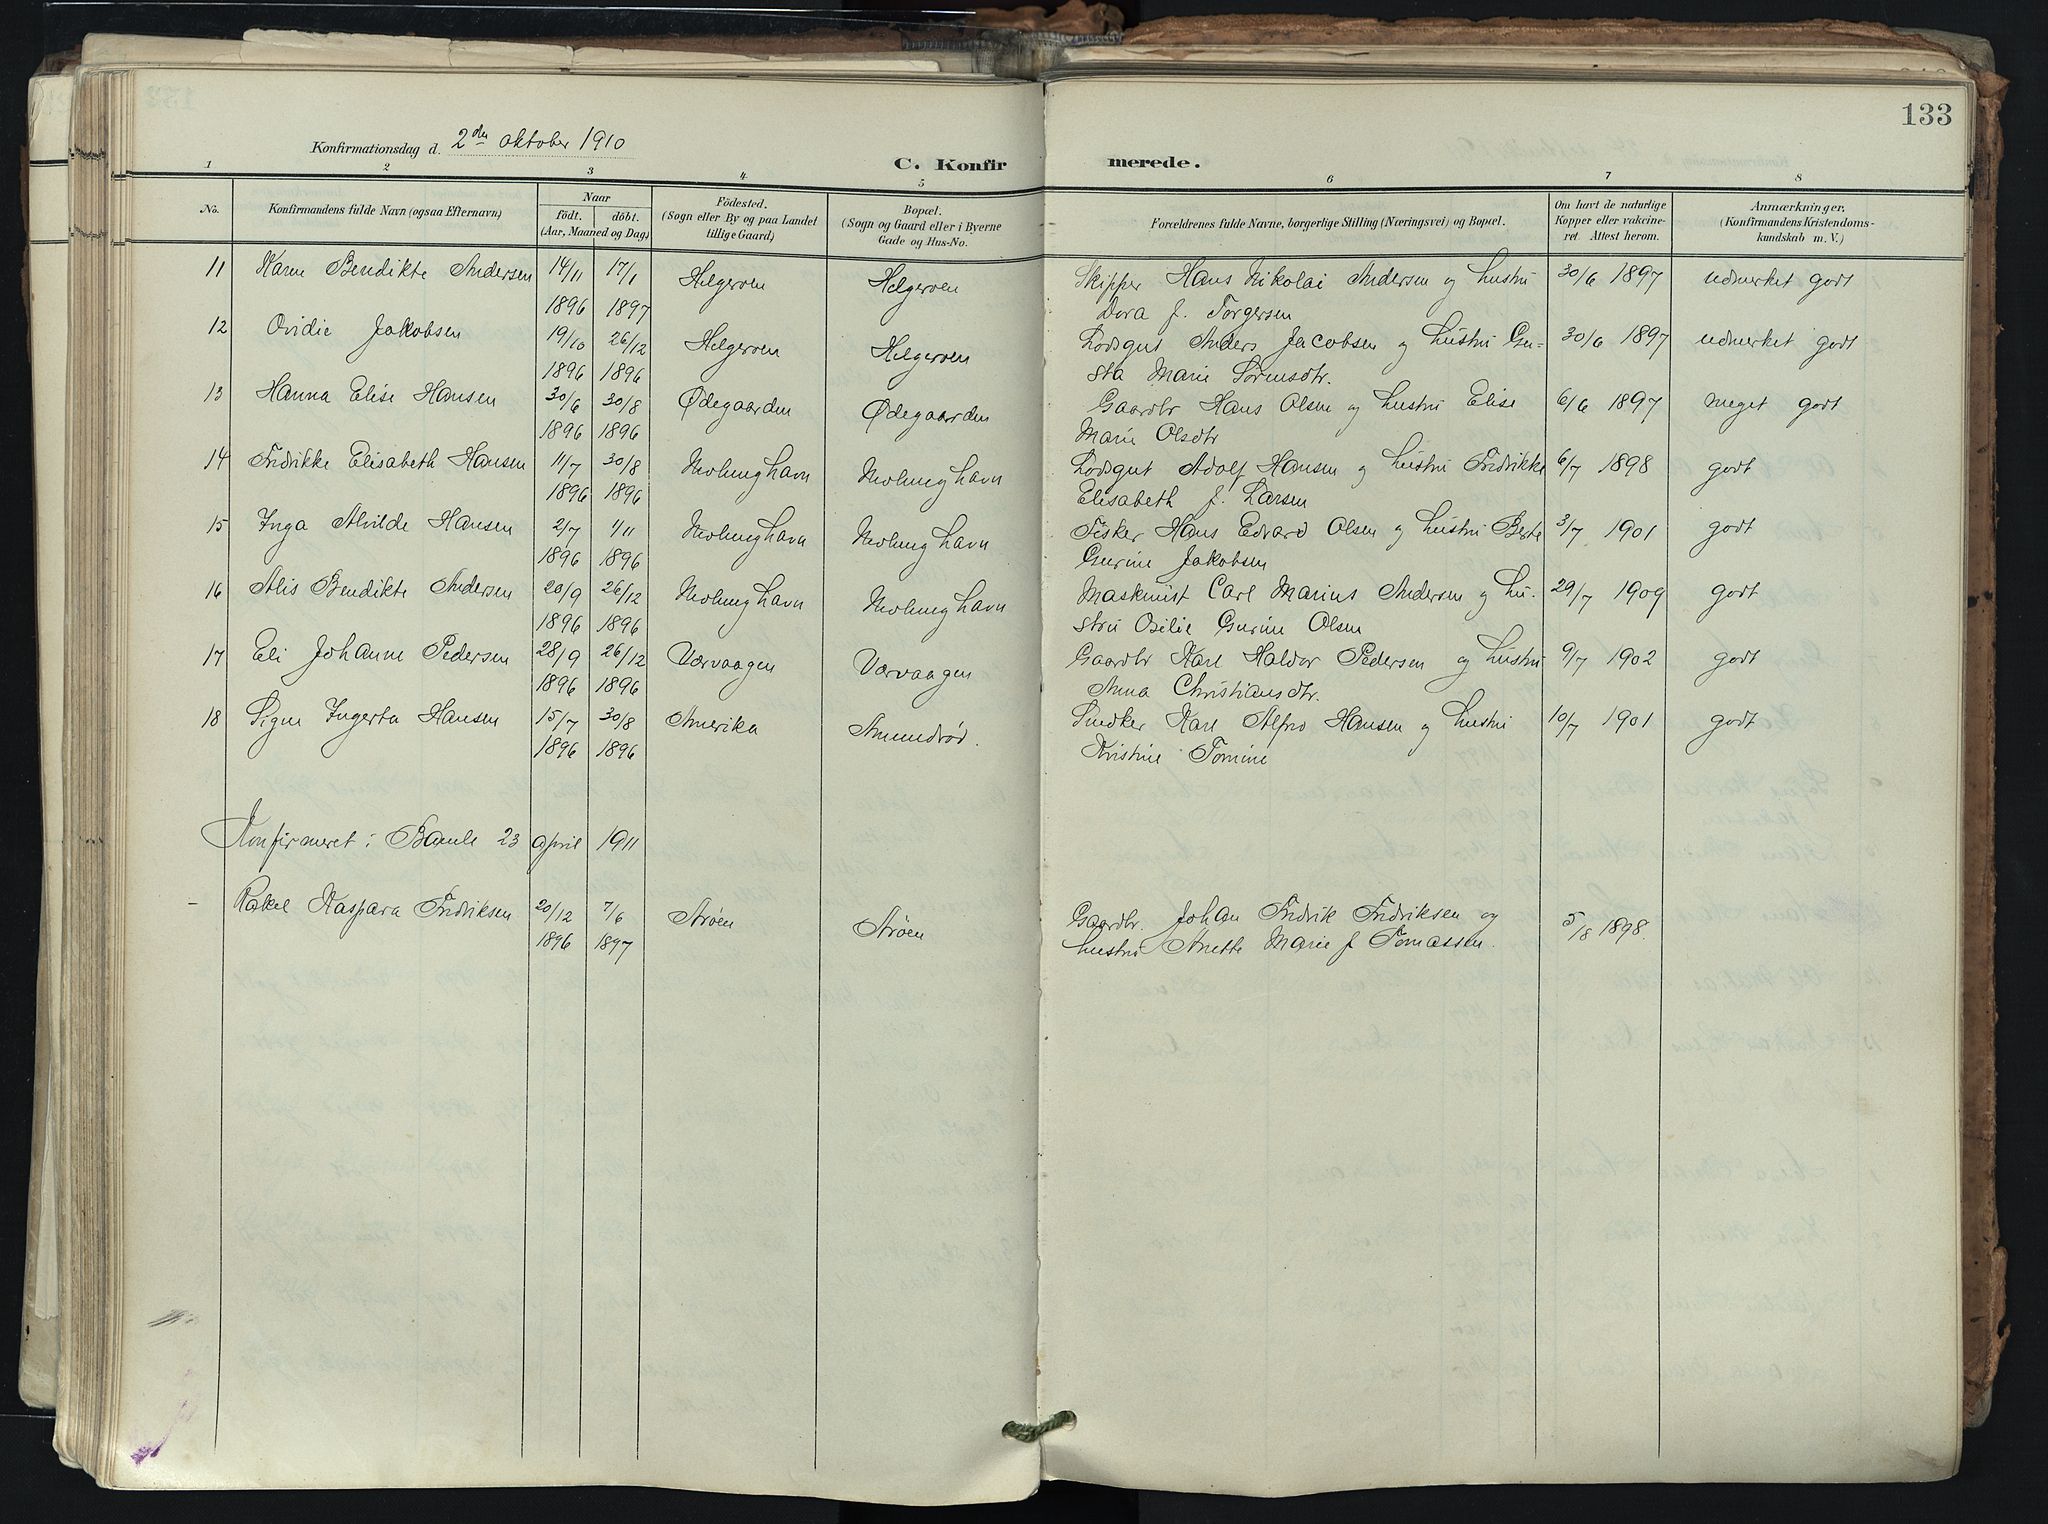 133
Konfirmationsdag d. 2den oktober 1910
C. Konfirmerede.
1 2 3 4 5 6 7 8
No. Konfirmandens fulde Navn (ogsaa Efternavn) Naar födt. döbt. (Aar, Maaned og Dag) Födested. (Sogn eller By og paa Landet tillige Gaard) Bopæl. (Sogn og Gaard eller i Byerne Gade og Hus-No. Forældrenes fulde Navne, borgerlige Stilling (Næringsvei) og Bopæl. Om havt de naturlige Kopper eller vakcineret. Attest herom. Anmærkninger. (Konfirmandens Kristendomskundskab m. V.)
11 Karen Bendikte Andersen 14/11 17/1 Helgeroen Helgeroen Skipper Hans Nikolai Andersen og hustru 30/6 1897 udmerket godt
1896 1897 Dora f. Torgersen
12 Ovidie Jakobsen 19/10 26/12 Helgeroen Helgeroen Lodsgut Anders Jacobsen og hustru Gu- 30/6 1897 udmerket godt
1896 1896 sta Marie Sörensdtr.
13 Hanna Elise Hansen 30/6 30/8 Ødegaarden Ødegaarden Gaardbr Hans Olsen og hustru Elise 6/6 1897 meget godt
1896 1896 Marie Olsdtr
14 Fridrikke Elisabeth Hansen 11/7 30/8 Nevlunghavn Nevlunghavn Lodsgut Adolf Hansen og hustru Fridrikke 6/7 1898 godt
1896 1896 Elisabeth f. Larsen
15 Inga Alvilde Hansen 2/7 1/11 Nevlunghavn Nevlunghavn Fisker Hans Edvard Olsen og hustru Berte 3/7 1901 godt
1896 1896 Gurine Jakobsen
16 Alis Bendikte Andersen 20/9 26/12 Nevlunghavn Nevlunghavn Maskinist Carl Marius Andersen og hu- 29/7 1909 godt
1896 1896 stru Osilie Gurine Olsen
17 Eli Johanne Pedersen 28/9 26/12 Værvaagen Værvaagen Gaardbr Karl Haldor Pedersen og hustru 9/7 1902 godt
1896 1896 Anna Christiansdtr.
18 Signe Ingerta Hansen 15/7 30/8 Amerika Amundrød. Snedker Karl Alfred Hansen og hustru 10/7 1901 godt
1896 1896 Kristine Tomine
Konfirmeret i Bamle 23 april 1911
- Rakel Kaspara Fridriksen 20/12 7/6 Arøen Arøen Gaardbr. Johan Fridrik Fridriksen og 5/8 1898.
1896 1897 hustru Anette Marie f Tomassen.